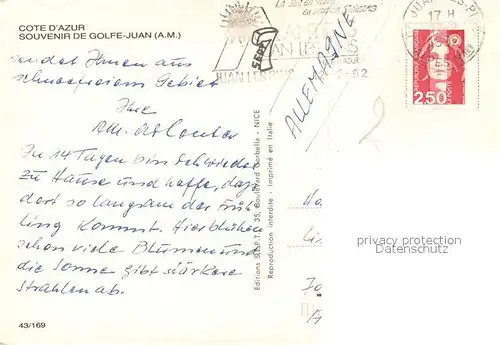 COTE D'AZUR
SOUVENIR DE GOLFE-JUAN (A.M.)
sendet Ihnen aus
schneefreiem Gebiet
Ihre
In 14 Tagen bin ich wieder
zu Hause und hoffe, daß
dort so langsam der Früh
ling kommt. Hier blühen
schon viele Blumen und
die Sonne gibt stärkere
Strahlen ab.
43/169
Editions S.E.P.T., 35, Boulevard - NICE
Reproduction interdite - Imprimé en Italie
ALLEMAGNE
JUAN LES PINS
SEPT
17 H
REPUBLIQUE FRANÇAISE
LA POSTE
2,50
privacy protection
Datenschutz